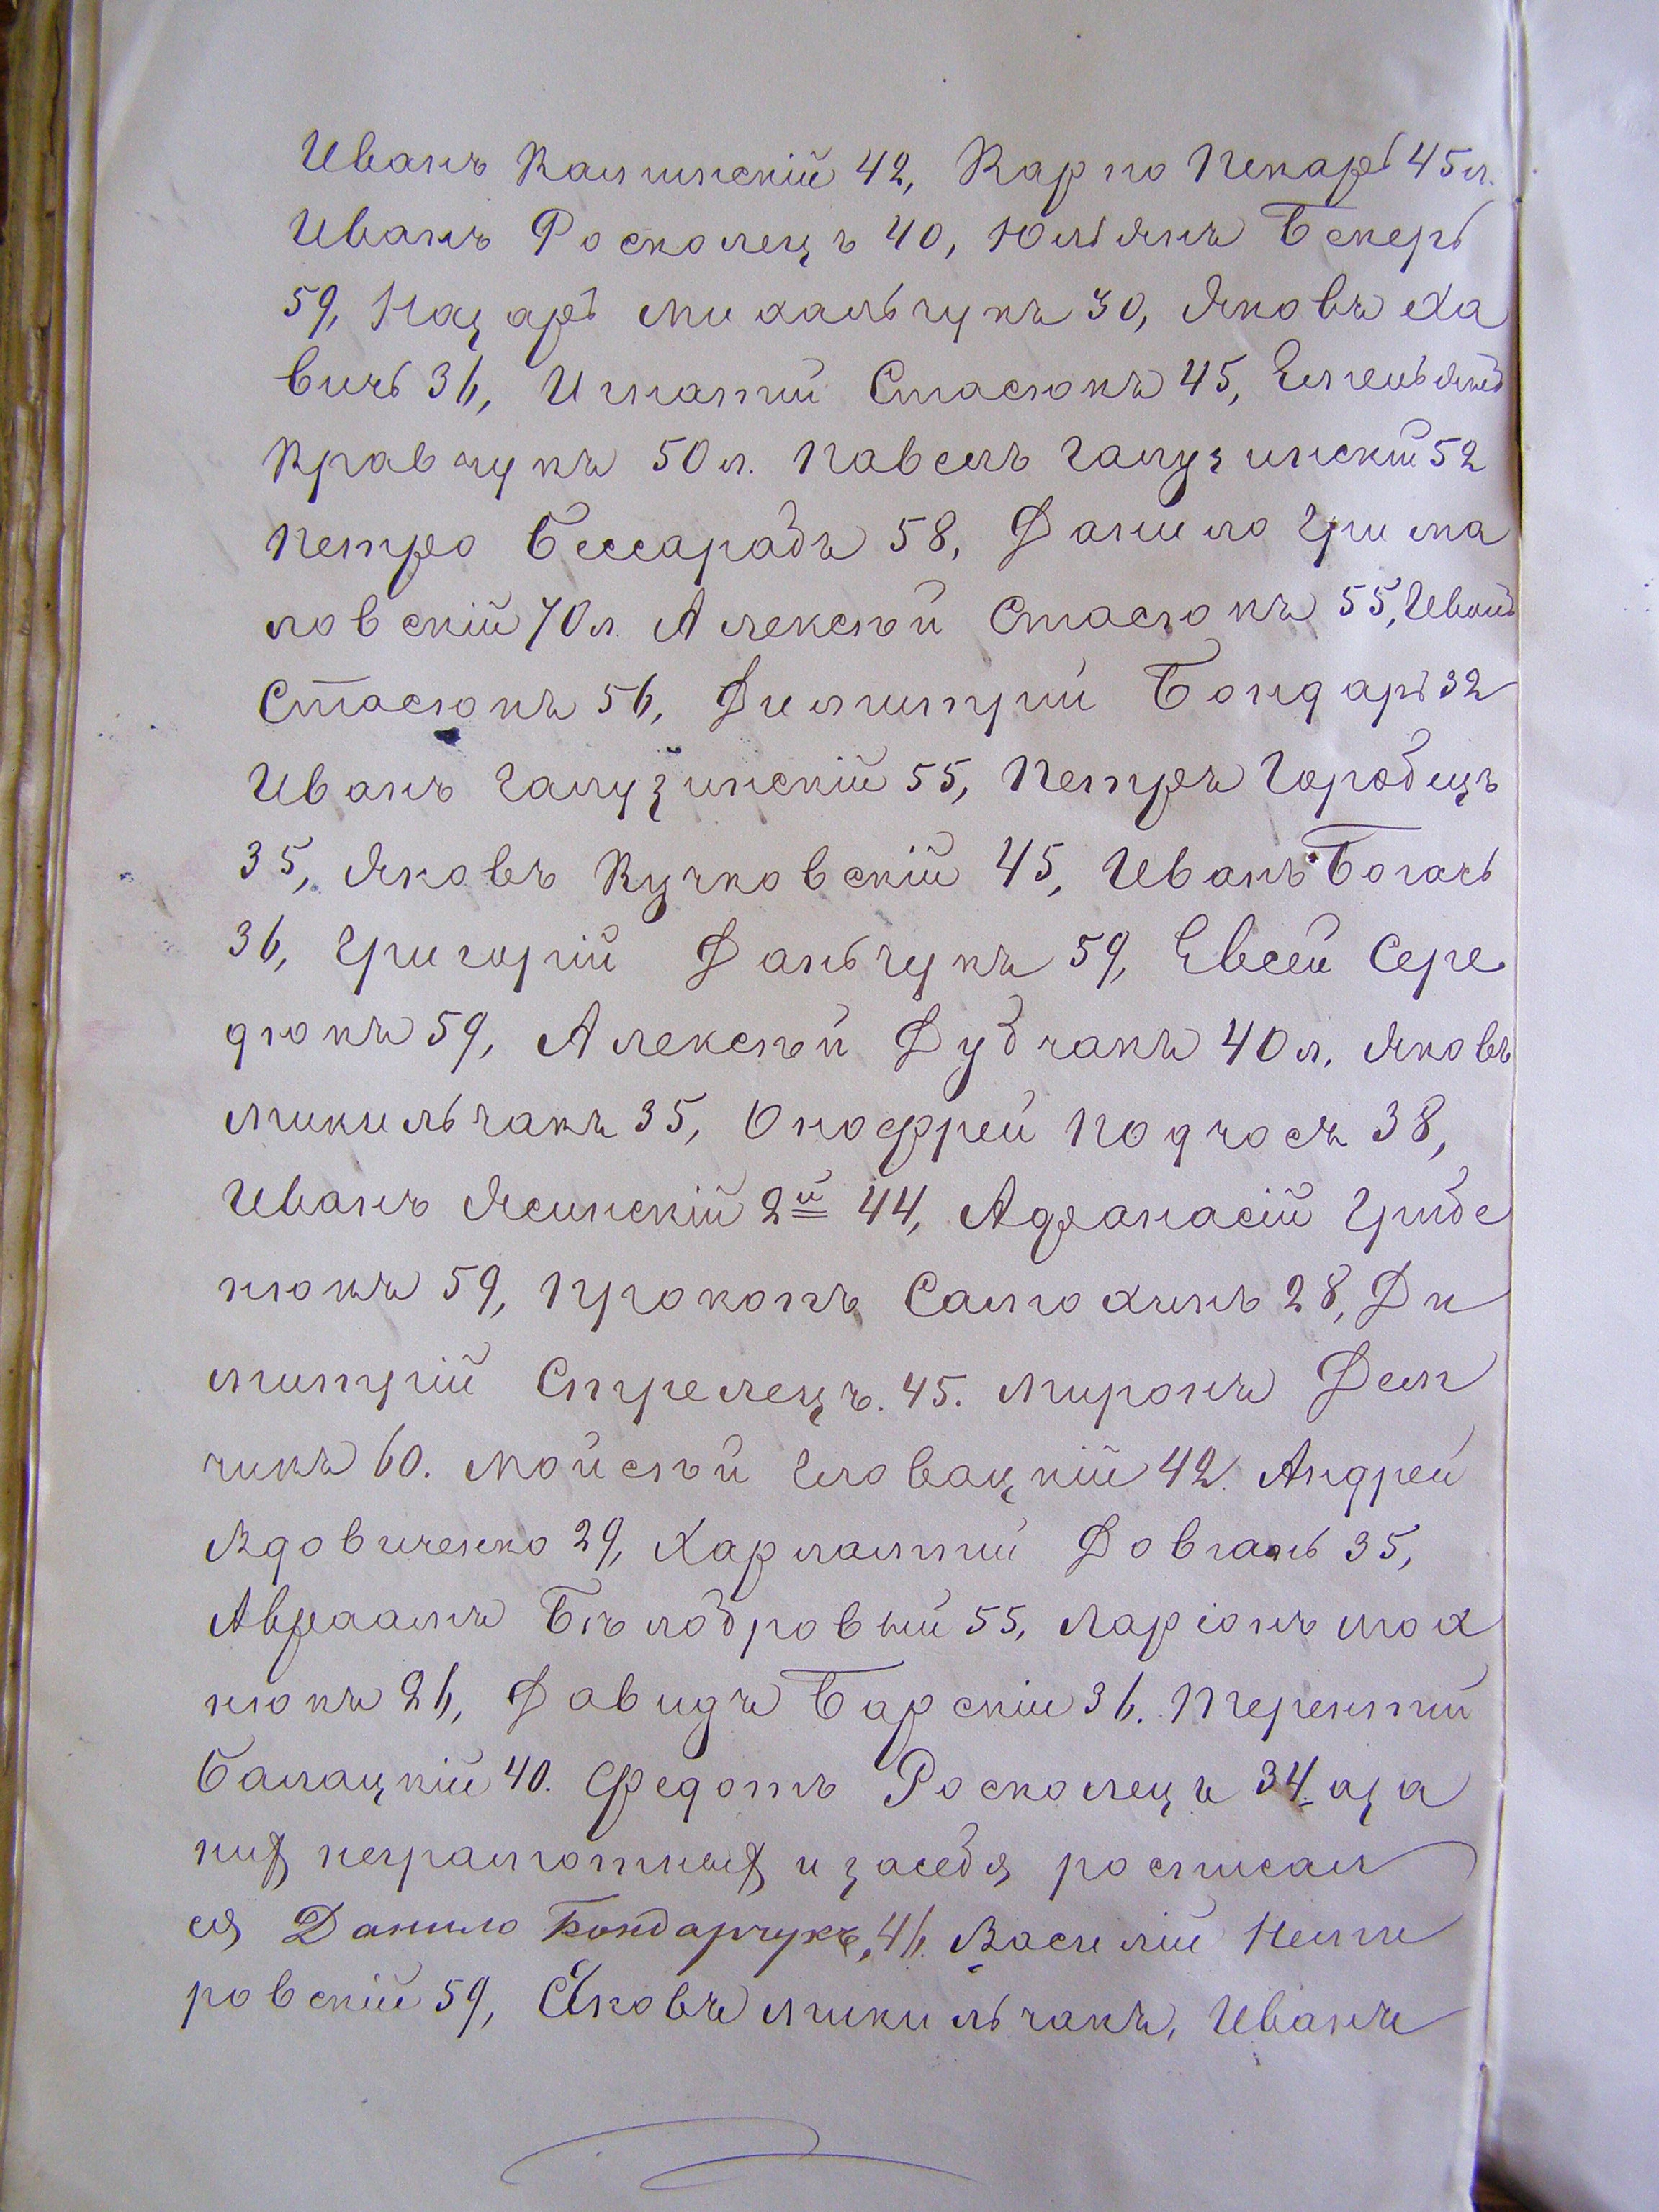 Иванъ Калинскій 42, Карпо Пекарь 45 л.
Иванъ Росколецъ 40, Юльянъ Бекерь
59, Назарь Михальчукъ 30, Яковъ Ха
вичь 36, Игнатій Стасюкъ 45, Емельянъ
Кравчукъ 50 л. Павелъ Галузинскій 52
Петро Бессарабъ 58, Данило Грима
ловскій 70 л. Алексѣй Стасюкъ 55, Иванъ
Стасюкъ 56, Димитрій Бондарь 32
Иванъ Галузинскій 55, Петръ Городецъ
35, Яковъ Кучковскій 45, Иванъ Богачь
36, Григорій Даньчукъ 59, Евсей Сере
дюкъ 59, Алексѣй Дубчакъ 40 л. Яковъ
Микильчакъ 35, Онофрей Подчосъ 38,
Иванъ Ясинскій 2й 44, Афанасій Грибе
нюкъ 59, Прокопъ Самохинъ 28, Ди
митрій Стрелецъ. 45. Миронъ Дем
чикъ 60. Мойсѣй Гловацкій 42. Андрей
Вдовиченко 29, Харлампій Довгань 35,
Авраамъ Бѣлобровый 55, Ларіонъ Мох
нюкъ 26, Давидъ Барскій 36. Терентій
Балацкій 40. Федотъ Росколецъ 34. а за
них неграмотных и за себя росписал
ся Данило Бондарчукъ, 46. Василій Неми
ровскій 59, Яковъ Микильчакъ, Иванъ